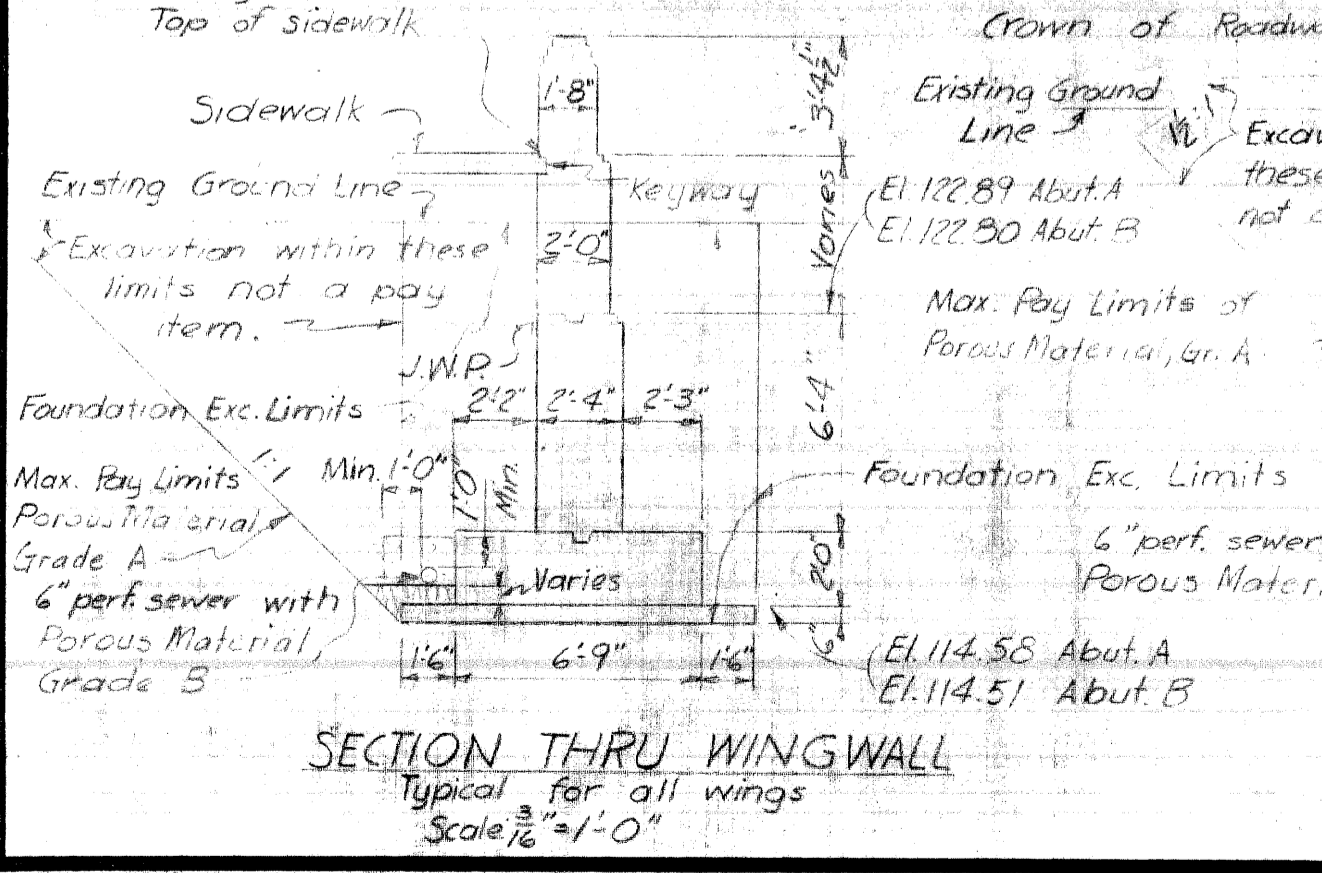 Top of sidewalk
Sidewalk
Existing Ground Line
Excavation within these
limits not a pay
item.
J.W.P.
Foundation Exc. Limits
Max. Pay Limits
Porous Material
Grade A
6" perf. sewer with
Porous Material,
Grade B
1:1
Min. 1'-0"
1'-0"
Min.
1'-8"
Keyway
2'-0"
2'-2" 2'-4" 2'-3"
Varies
1'-6" 6'-9" 1'-6"
3'-4½"
Varies
6'-4"
2'-0"
6"
Crown of
Existing Ground
Line
½:1
Excav
these
not a
El. 122.89 Abut. A
El. 122.80 Abut. B
Max. Pay Limits of
Porous Material, Gr. A
Foundation Exc. Limits
6" perf. sewer
Porous Mater
El. 114.58 Abut. A
El. 114.51 Abut. B
SECTION THRU WINGWALL
Typical for all wings
Scale: 3/16" = 1'-0"